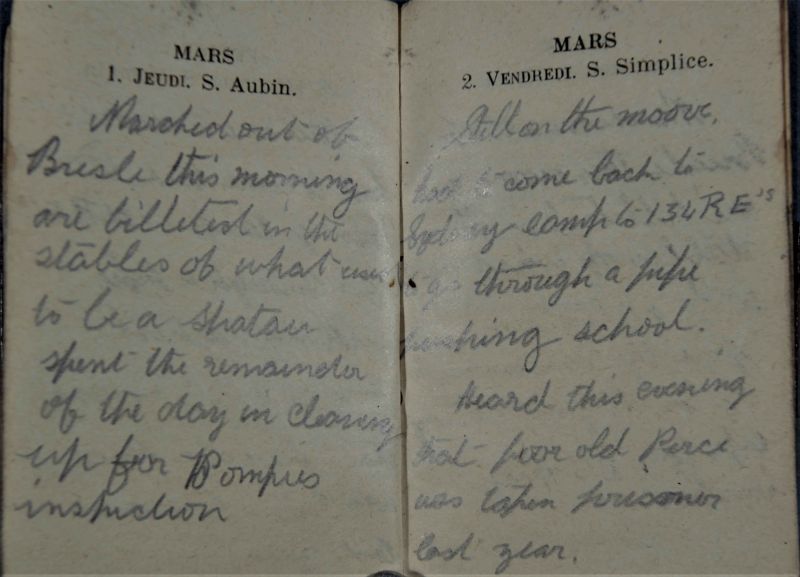 MARS
1. JEUDI. S. Aubin.
Marched out of
Bresle this morning
are billeted in the
stables of what used
to be a shatau
spent the remainder
of the day in cleaning
up for Pompies
inspection
MARS
2. VENDREDI. S. Simplice.
Still on the moove.
had to come back to
Sydney camp to 134 RE's
to go through a pipe
pushing school.
Heard this evening
that poor old Perce
was taken prisoner
last year.